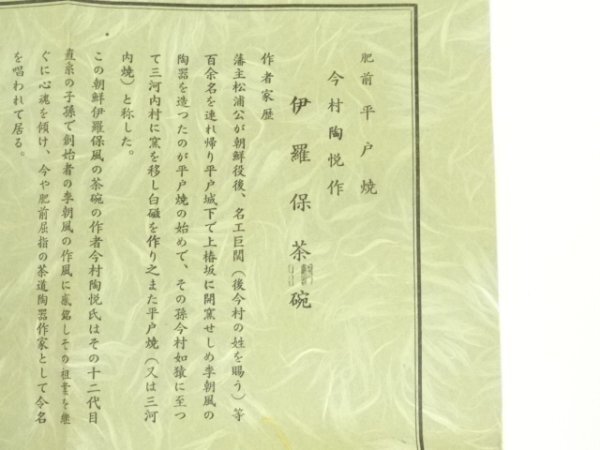 肥前平戸焼
今村陶悦作
伊羅保茶碗
作者家歴
藩主松浦公が朝鮮役後、名工巨関（後今村の姓を賜う）等
百余名を連れ帰り平戸城下で上椿坂に開窯せしめ李朝風の
陶器を造つたのが平戸焼の始めで、その孫今村如猿に至つ
て三河内村に窯を移し白磁を作り之また平戸焼（又は三河
内焼）と称した。
この朝鮮伊羅保風の茶碗の作者今村陶悦氏はその十二代目
直系の子孫で創始者の李朝風の作風に感銘しその祖業を継
ぐに心魂を傾け、今や肥前屈指の茶道陶器作家として令名
を唱われて居る。